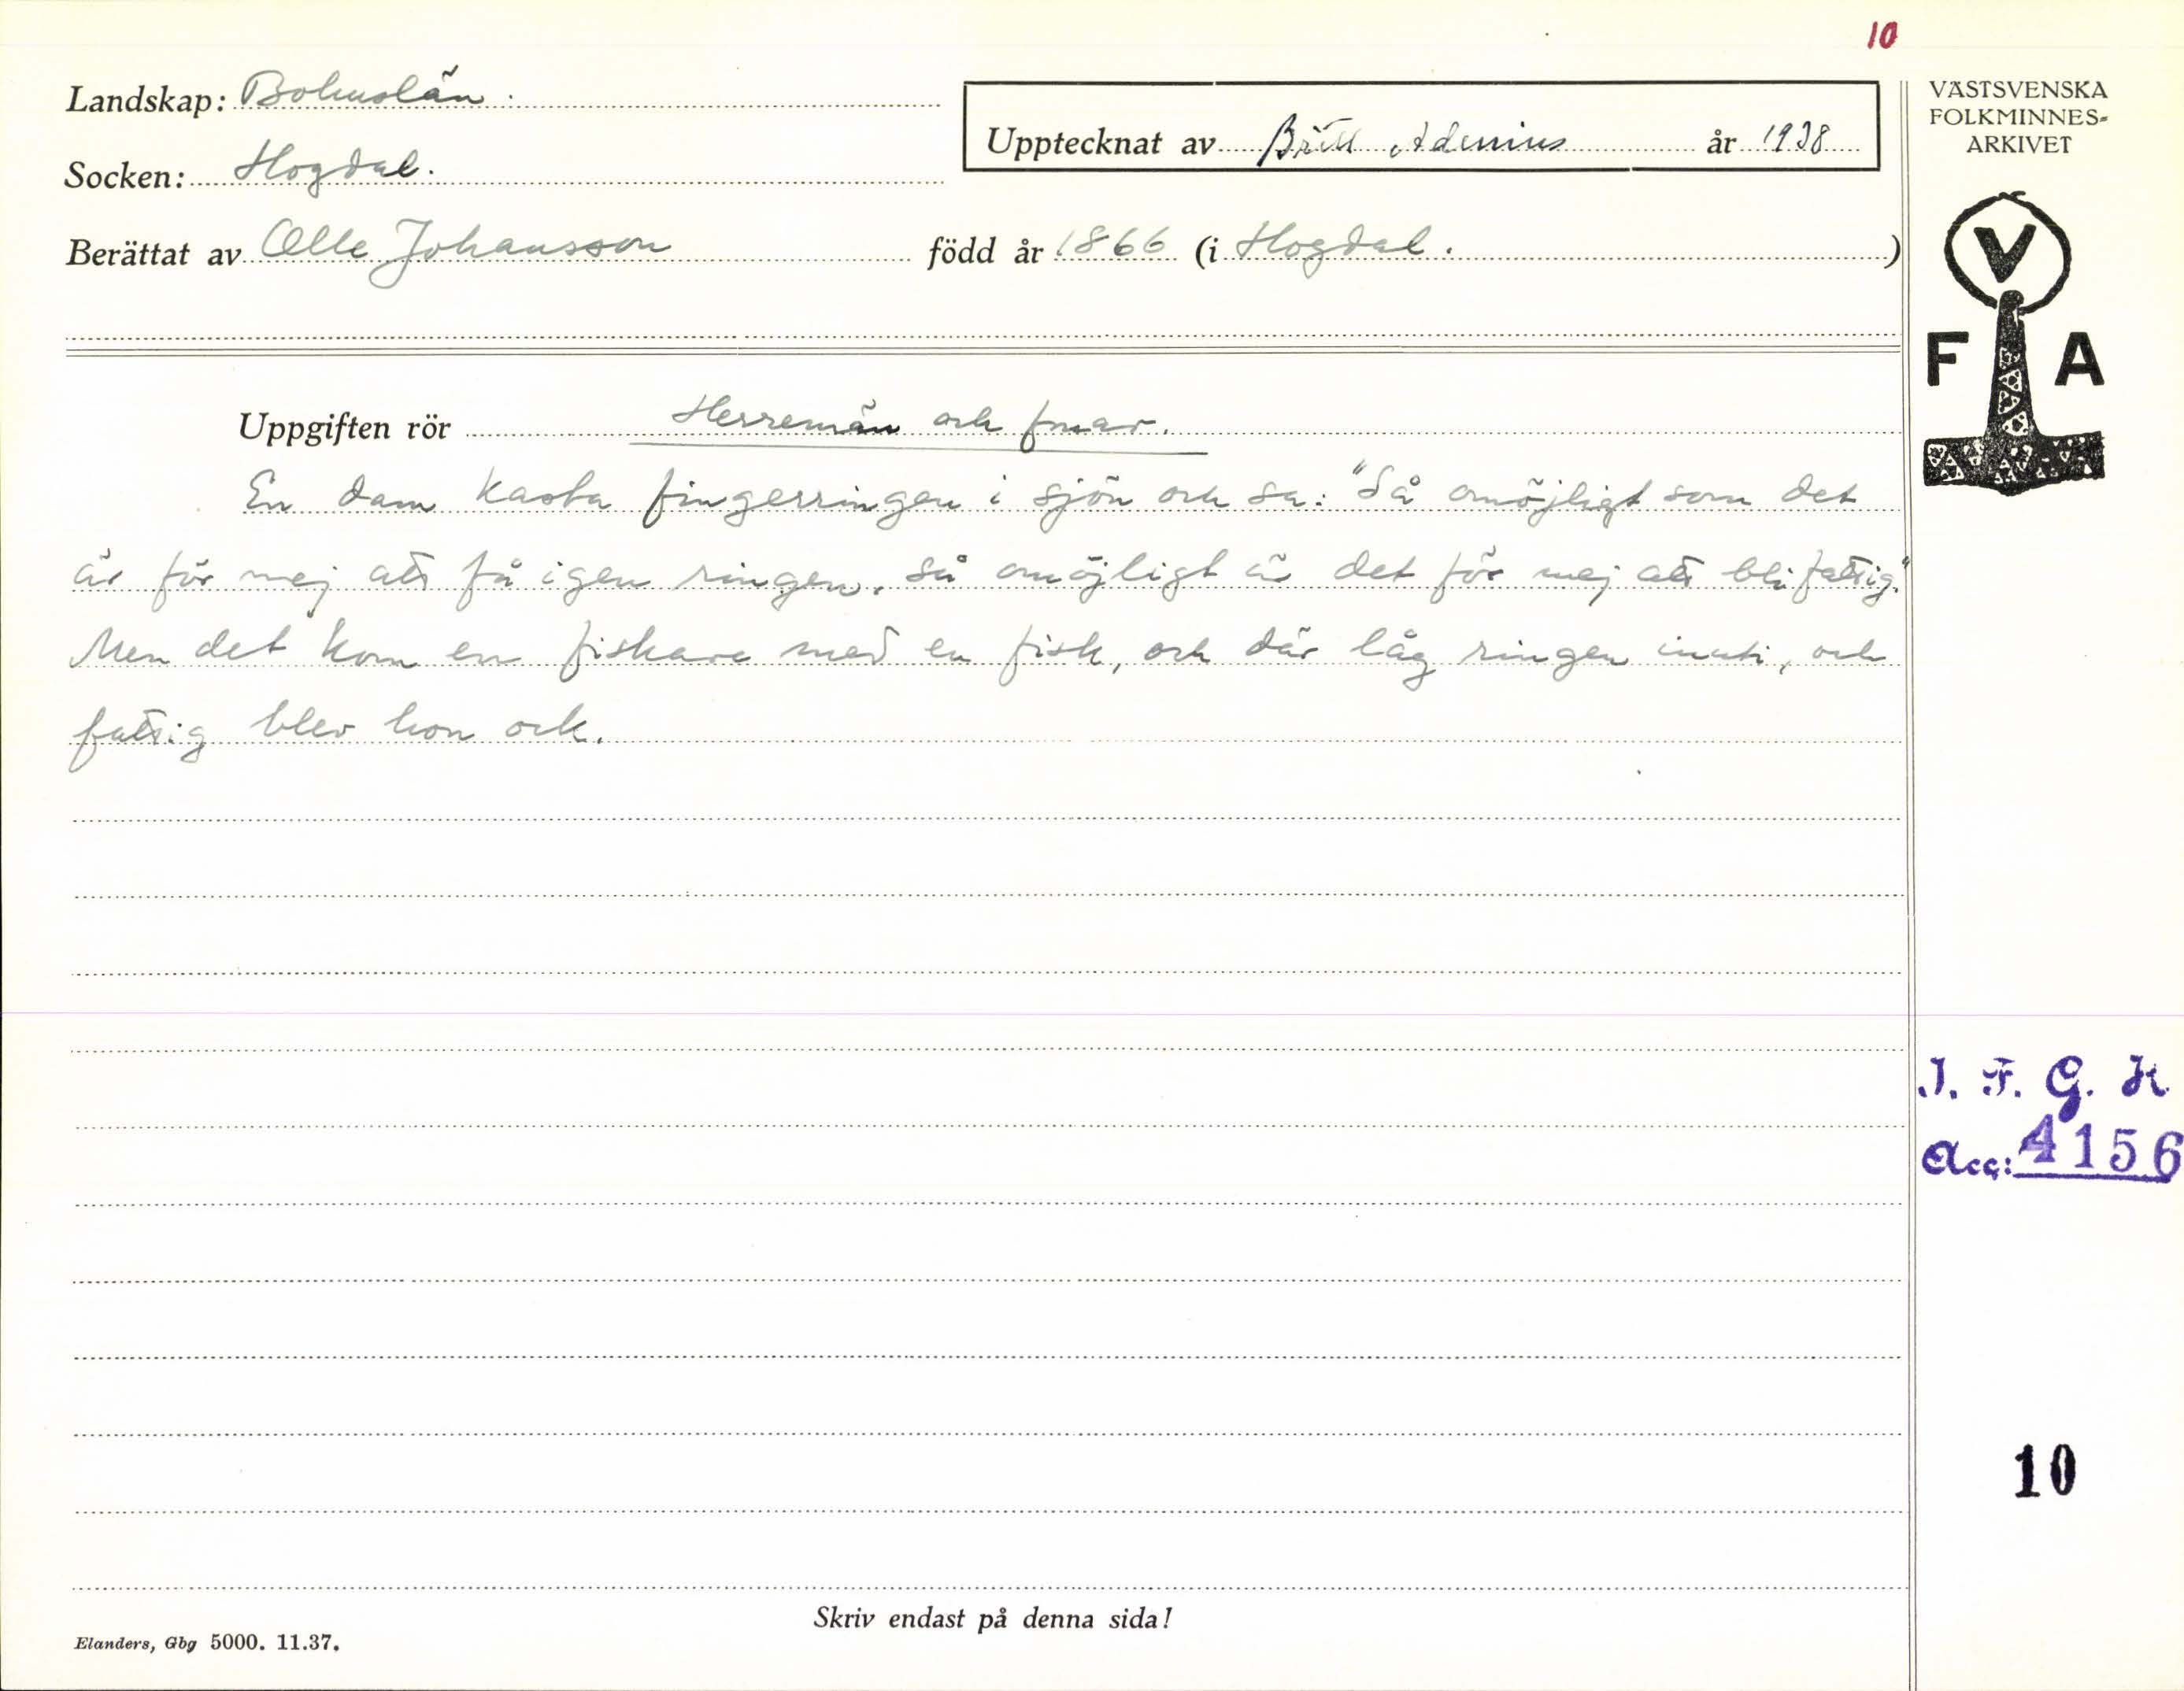 10
Landskap: Bohuslän.
Upptecknat av Britt Adenius år 1938
Socken: Hogdal.
Berättat av Olle Johansson född år 1866 (i Hogdal.)
VÄSTSVENSKA
FOLKMINNES-
ARKIVET
V
F A
Uppgiften rör Herremän och fruar.
En dam kasta fingerringen i sjön och sa: "Så omöjligt som det
är för mej att få igen ringen, så omöjligt är det för mej att bli fattig."
Men det kom en fiskare med en fisk, och där låg ringen inuti, och
fattig blev hon ock.
I. F. G. H
Acc: 4156
10
Skriv endast på denna sida!
Elanders, Gbg 5000. 11.37.